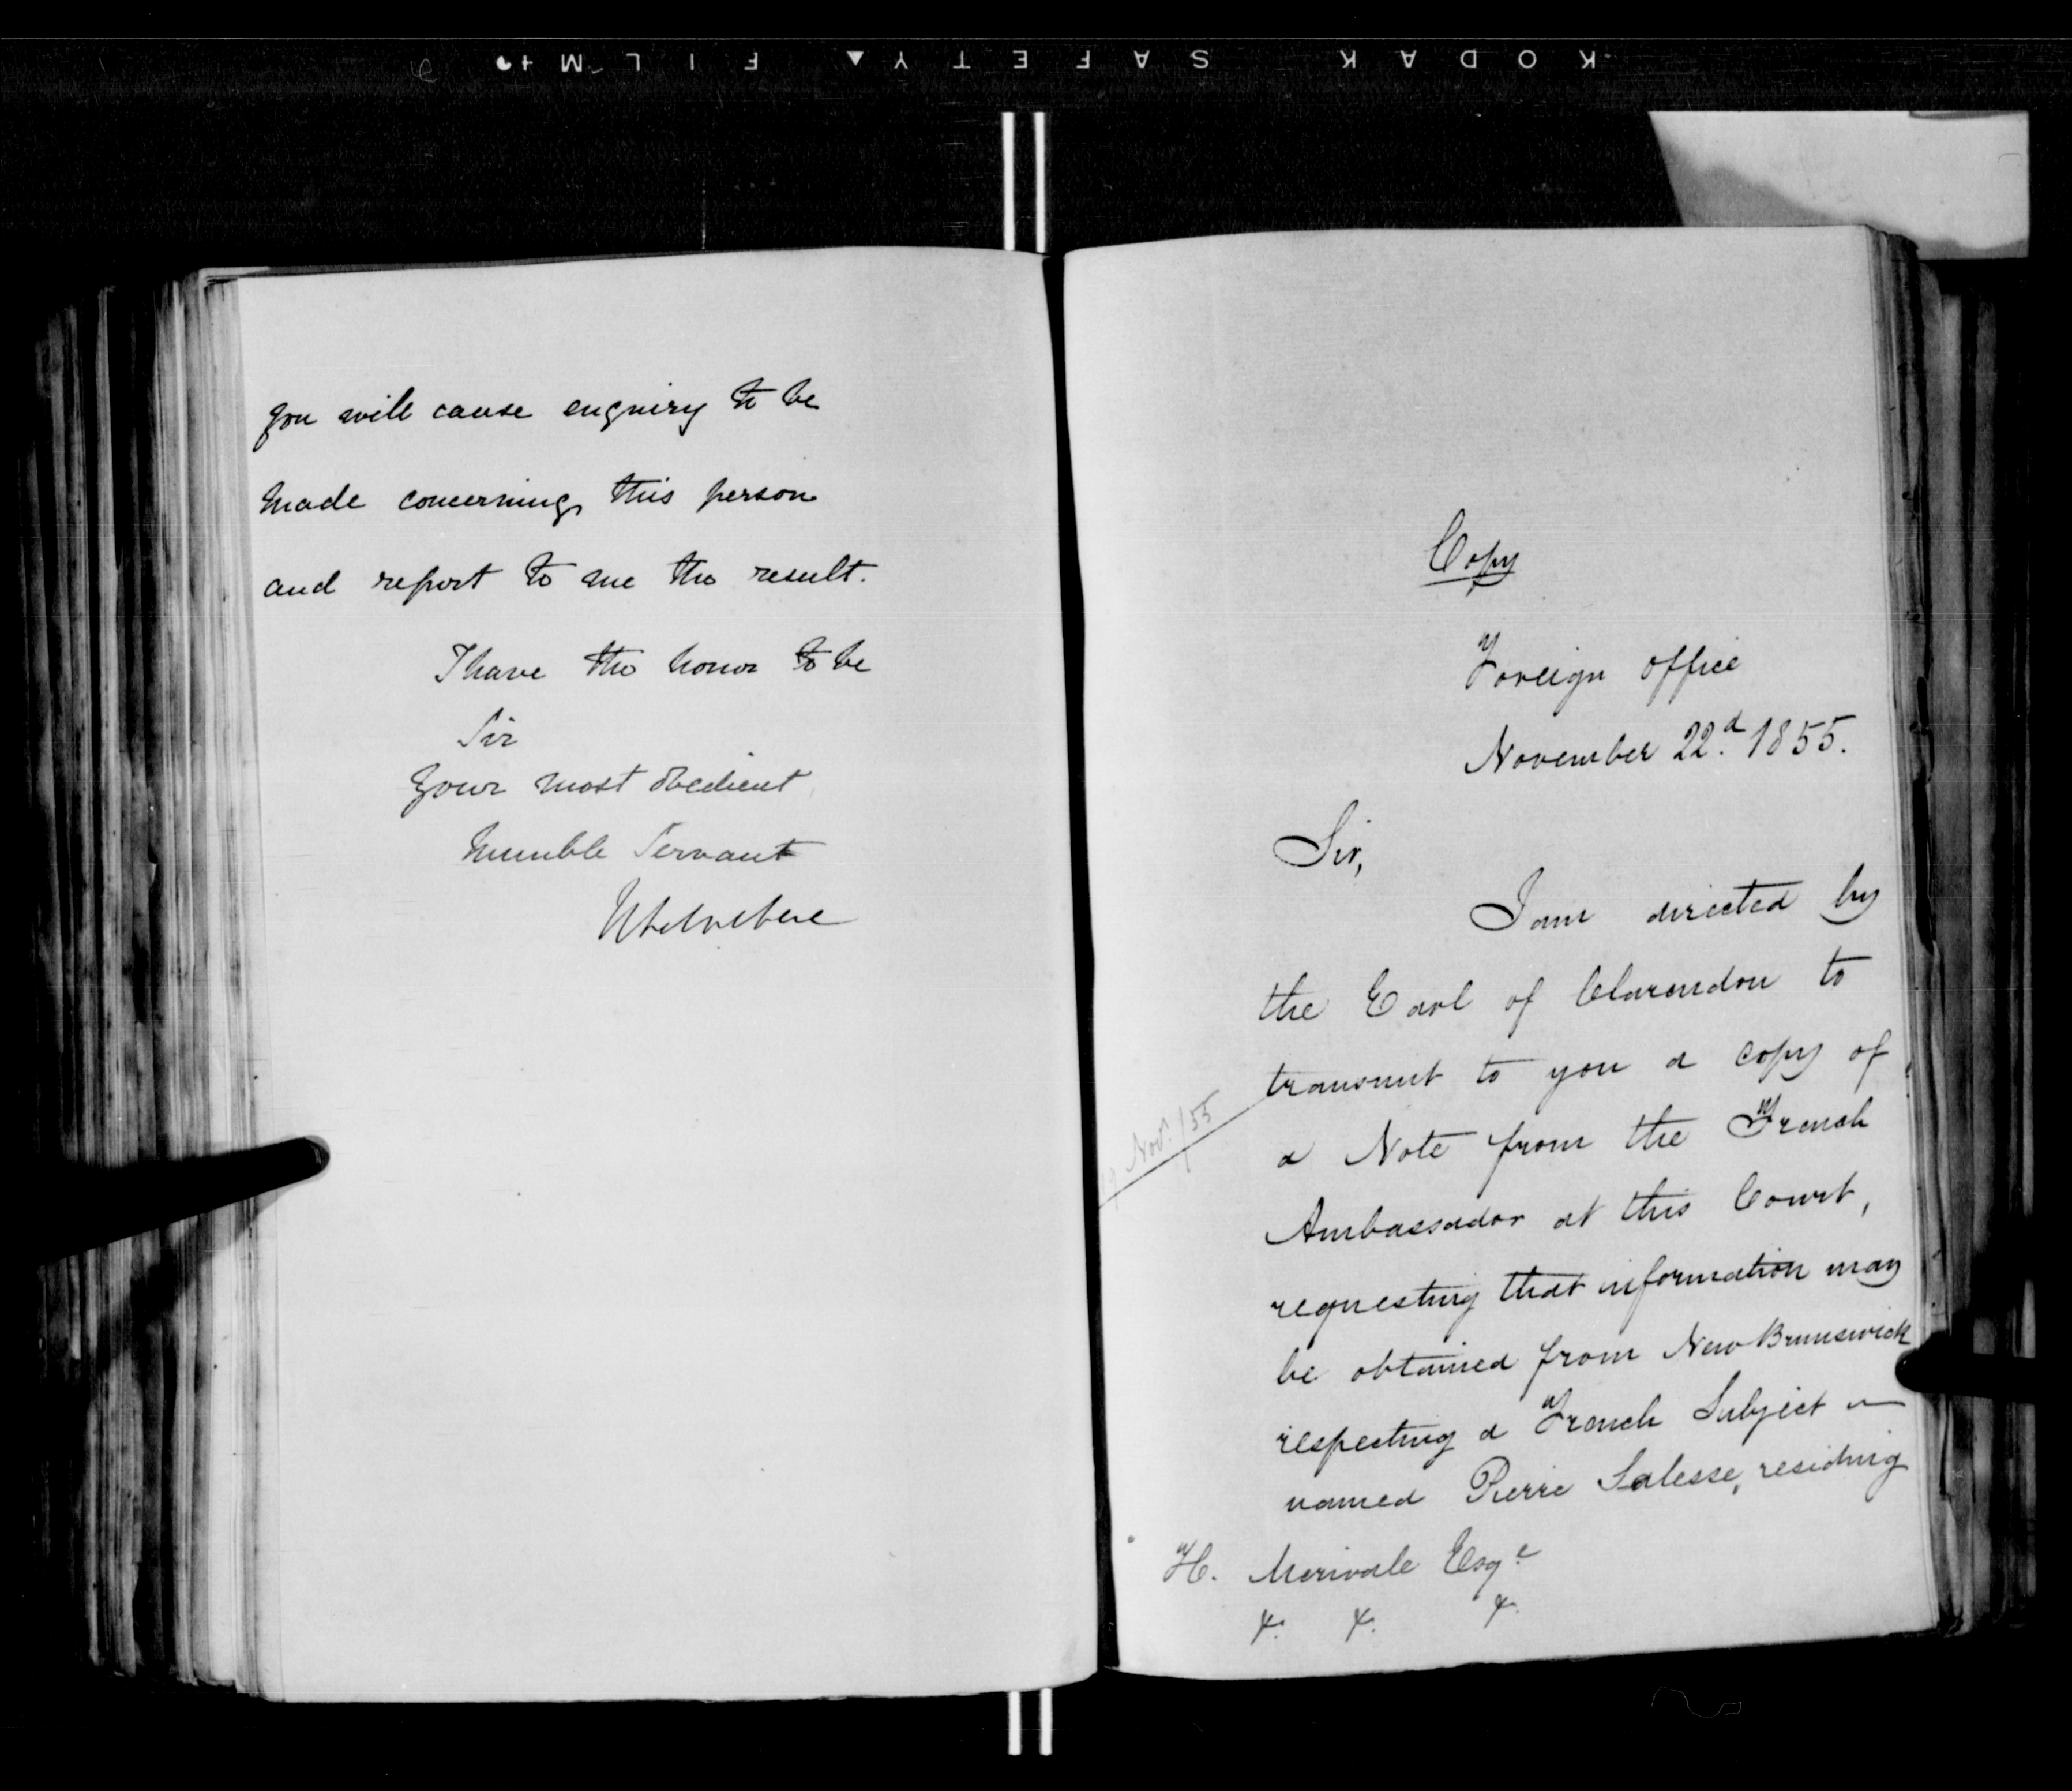 KODAK SAFETY FILM
you will cause enquiry to be
made concerning this person
and report to me the result.
I have the honor to be
Sir
Your most obedient
humble Servant
Copy
Foreign Office
November 22d. 1855.
Sir,
I am directed by
the Earl of Clarendon to
transmit to you a copy of
Nov. /55
a Note from the French
Ambassador at this Court,
requesting that information may
be obtained from New Brunswick
respecting a French Subject
named Pierre Salesse, residing
H. Merivale Esqe.
&. &. &.